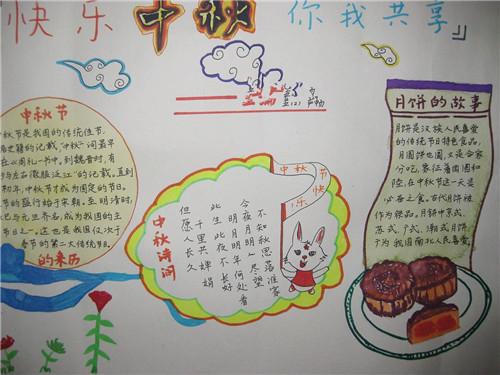 快乐中秋 你我共享』
中秋节
秋节是我国的传统佳节,
史籍的记载,"中秋"一词最早
在《周礼》一书中,到魏晋时,有
与左右微服泛江"的记载,直到
初年,中秋节才成为固定的节日。
节的盛行始于宋朝,至明清时,
已与元旦齐名,成为我国的主
节日之一。这也是我国仅次于
春节的第二大传统节日。
的来历
中秋
节快
乐
中秋诗词
不知秋思落谁家
今夜月明人尽望
明月明年何处看
此生此夜不长好
千里共婵娟
但愿人长久
月饼的故事
月饼是汉族人民喜爱
的传统节日特色食品,
月圆饼也圆,又是合家
分吃,象征着团圆和
睦,在中秋节这一天是
必吞之食。古代月饼被
作为祭品。月饼中京式、
苏式、广式、潮式月饼
为我国南北人民喜爱。